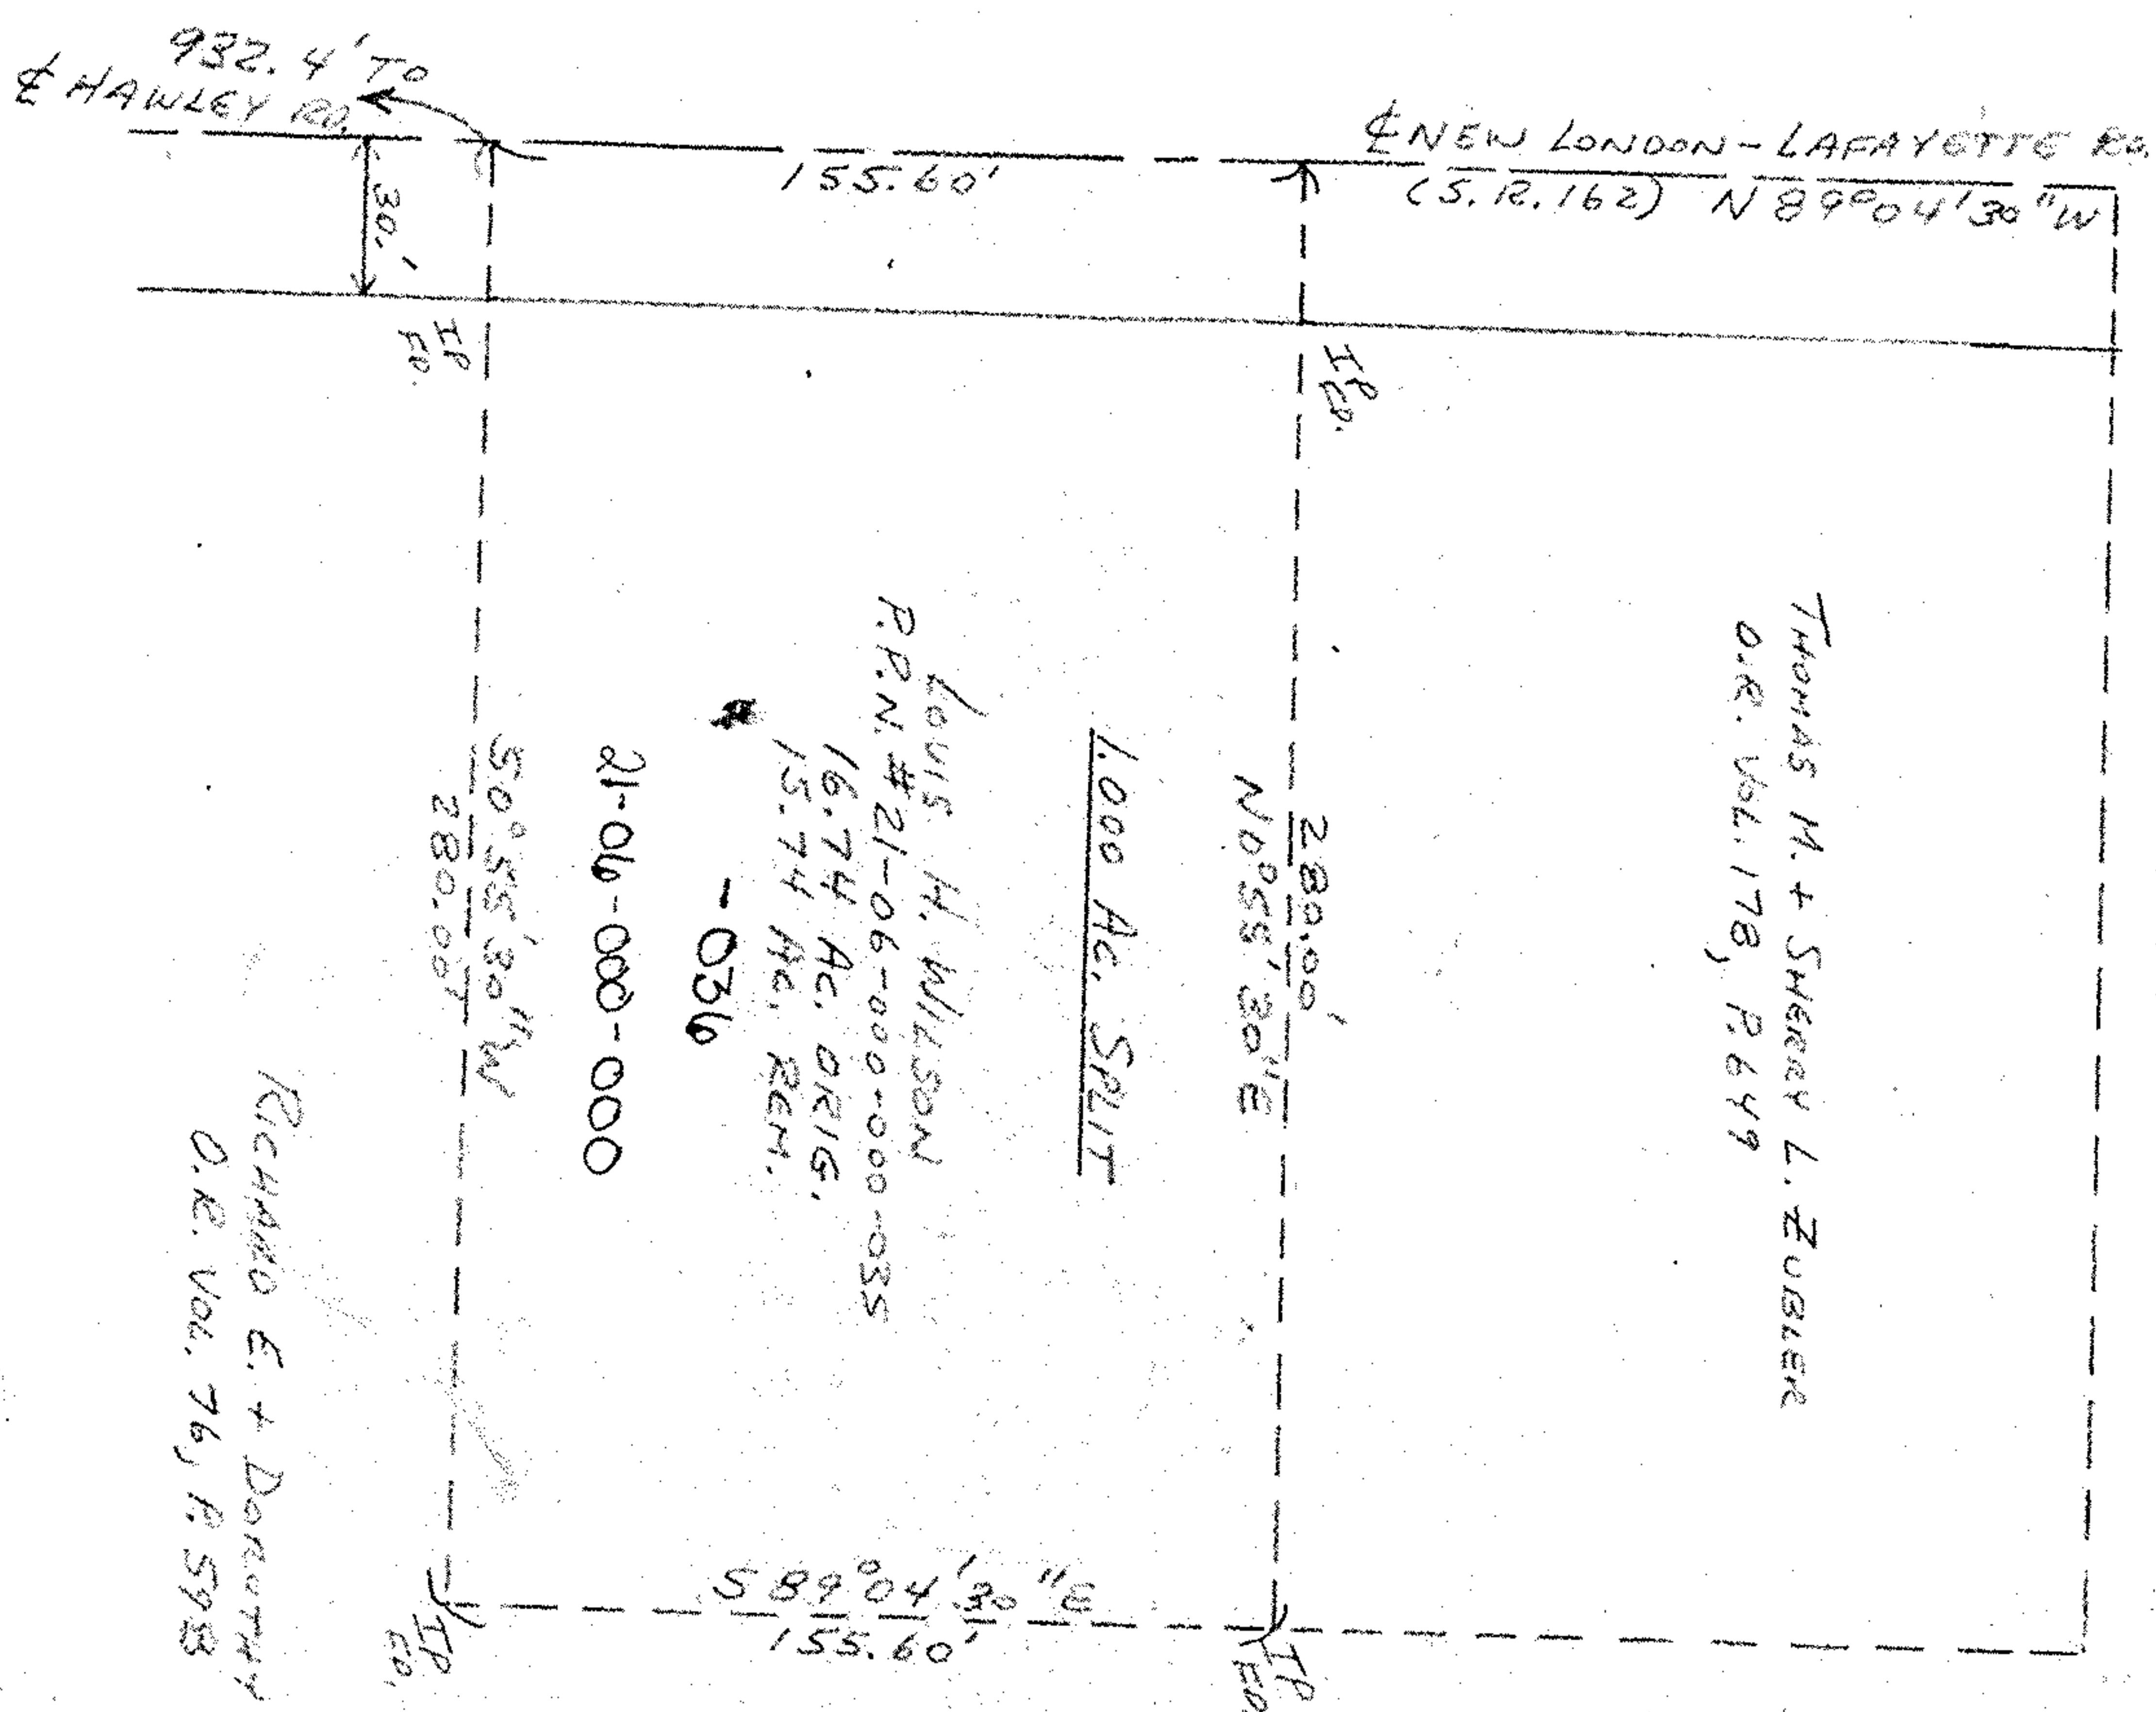 932.4' TO
℄ HAWLEY RD.
℄ NEW LONDON-LAFAYETTE RD.
155.60'
(S.R. 162) N 89°04'30"W
30.'
IP
FD.
IP
FD.
THOMAS M. + SHERRY L. ZUBLER
O.R. VOL. 178, P. 649
280.00'
N0°55'30"E
1.000 AC. SPLIT
LOUIS H. WILSON
P.P.N. #21-06-000-000-035
16.74 AC. ORIG.
15.74 AC. REM.
-036
21-06-000-000
S0°55'30"W
280.00'
RICHARD E. + DOROTHY
O.R. VOL. 76, P. 598
S 89°04'30"E
155.60'
IP
FD.
IP
FD.